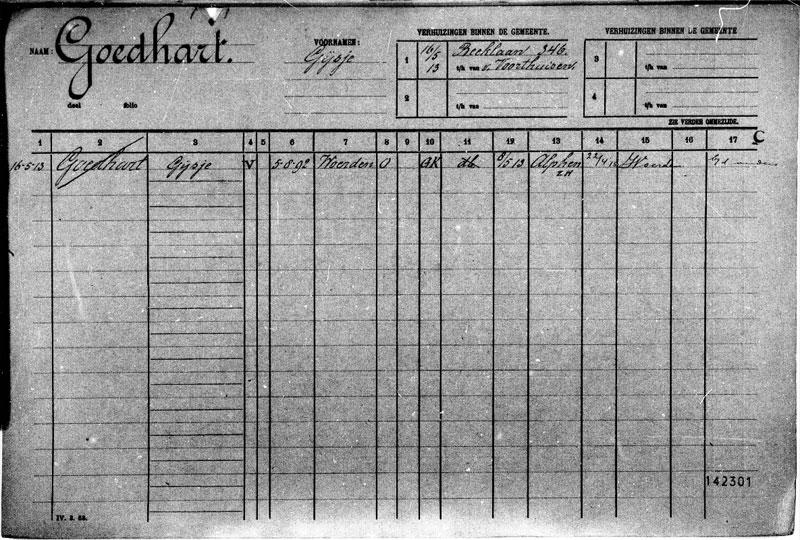 NAAM: Goedhart.
VOORNAMEN:
Gijsje
deel folio
VERHUIZINGEN BINNEN DE GEMEENTE.
1 16/5 13 Beeklaan 346.
t/h van v. Voorthuisen
2
t/h van
VERHUIZINGEN BINNEN DE GEMEENTE
3
t/h van
4
t/h van
ZIE VERDER OMMEZIJDE.
1 2 3 4 5 6 7 8 9 10 11 12 13 14 15 16 17 C
16-5-13 Goedhart Gijsje V 5-8-92 Woerden O GK db 8/5 13 Alphen Z.H.
142301
IV. 3. 68.